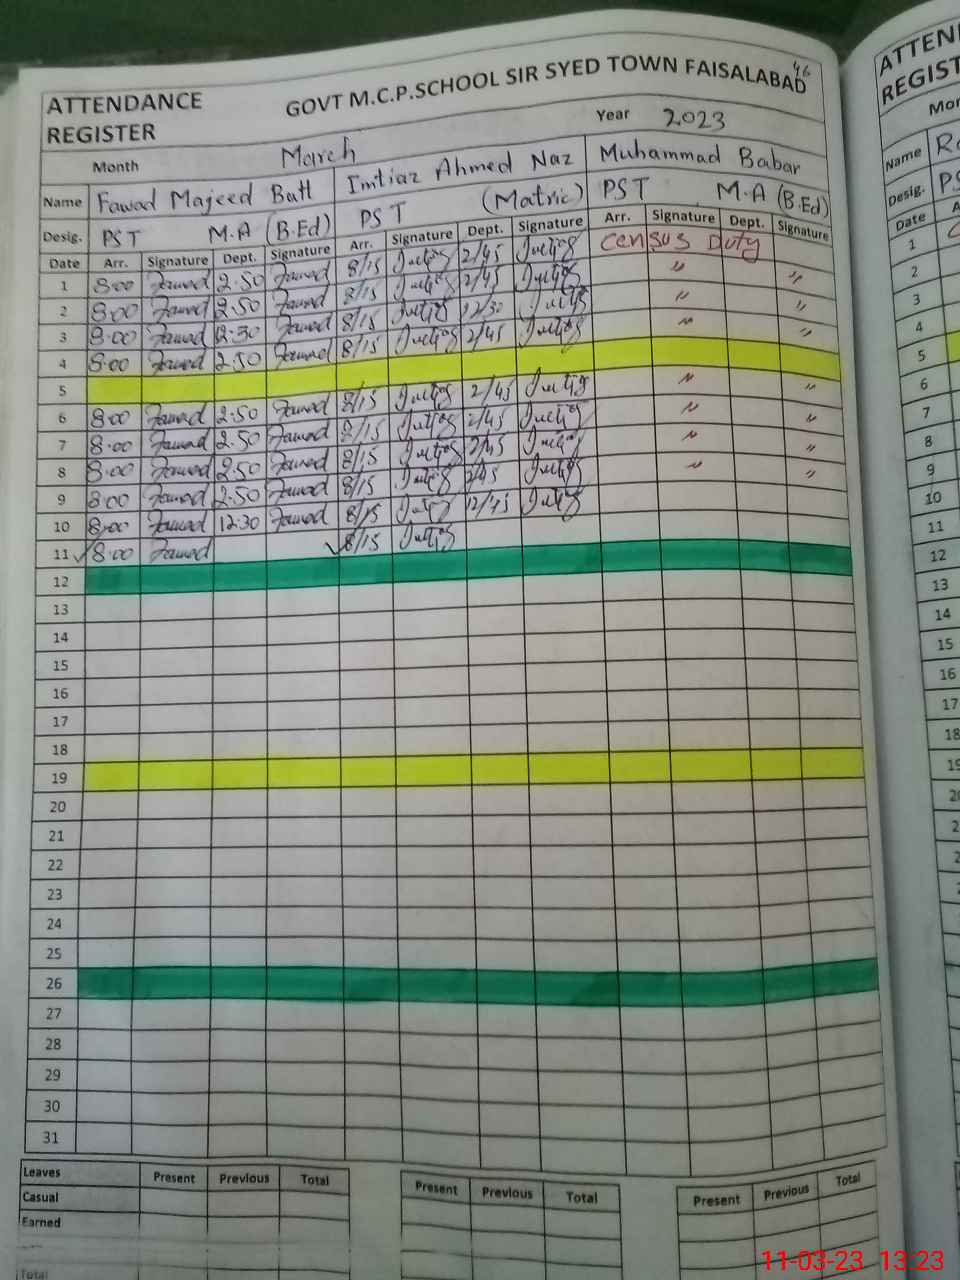 ATTENDANCE REGISTER GOVT M.C.P.SCHOOL SIR SYED TOWN FAISALABAD 46
Month March Year 2023
Name Fawad Majeed Butt Imtiaz Ahmed Naz Muhammad Babar
Desig. PST M.A (B.Ed) PST (Matric) PST M.A (B.Ed)
Date Arr. Signature Dept. Signature Arr. Signature Dept. Signature Arr. Signature Dept. Signature
1 8:00 Fawad 2.50 Fawad 8/15 2/45 Census Duty
2 8:00 Fawad 2.50 Fawad 8/15 2/45 " "
3 8:00 Fawad 12:30 Fawad 8/15 12/30 " "
4 8:00 Fawad 2.50 Fawad 8/15 2/45 " "
5
6 8:00 Fawad 2.50 Fawad 8/15 2/45 " "
7 8:00 Fawad 2.50 Fawad 8/15 2/45 " "
8 8:00 Fawad 2.50 Fawad 8/15 2/45 " "
9 8:00 Fawad 2.50 Fawad 8/15 2/45 " "
10 8:00 Fawad 12:30 Fawad 8/15 12/45
11 8:00 Fawad 8/15
12
13
14
15
16
17
18
19
20
21
22
23
24
25
26
27
28
29
30
31
Leaves Present Previous Total Present Previous Total Present Previous Total
Casual
Earned
Total
ATTEN
REGIST
Mon
Name
Desig. PS
Date A
1
2
3
4
5
6
7
8
9
10
11
12
13
14
15
16
17
18
19
11-03-23 13:23